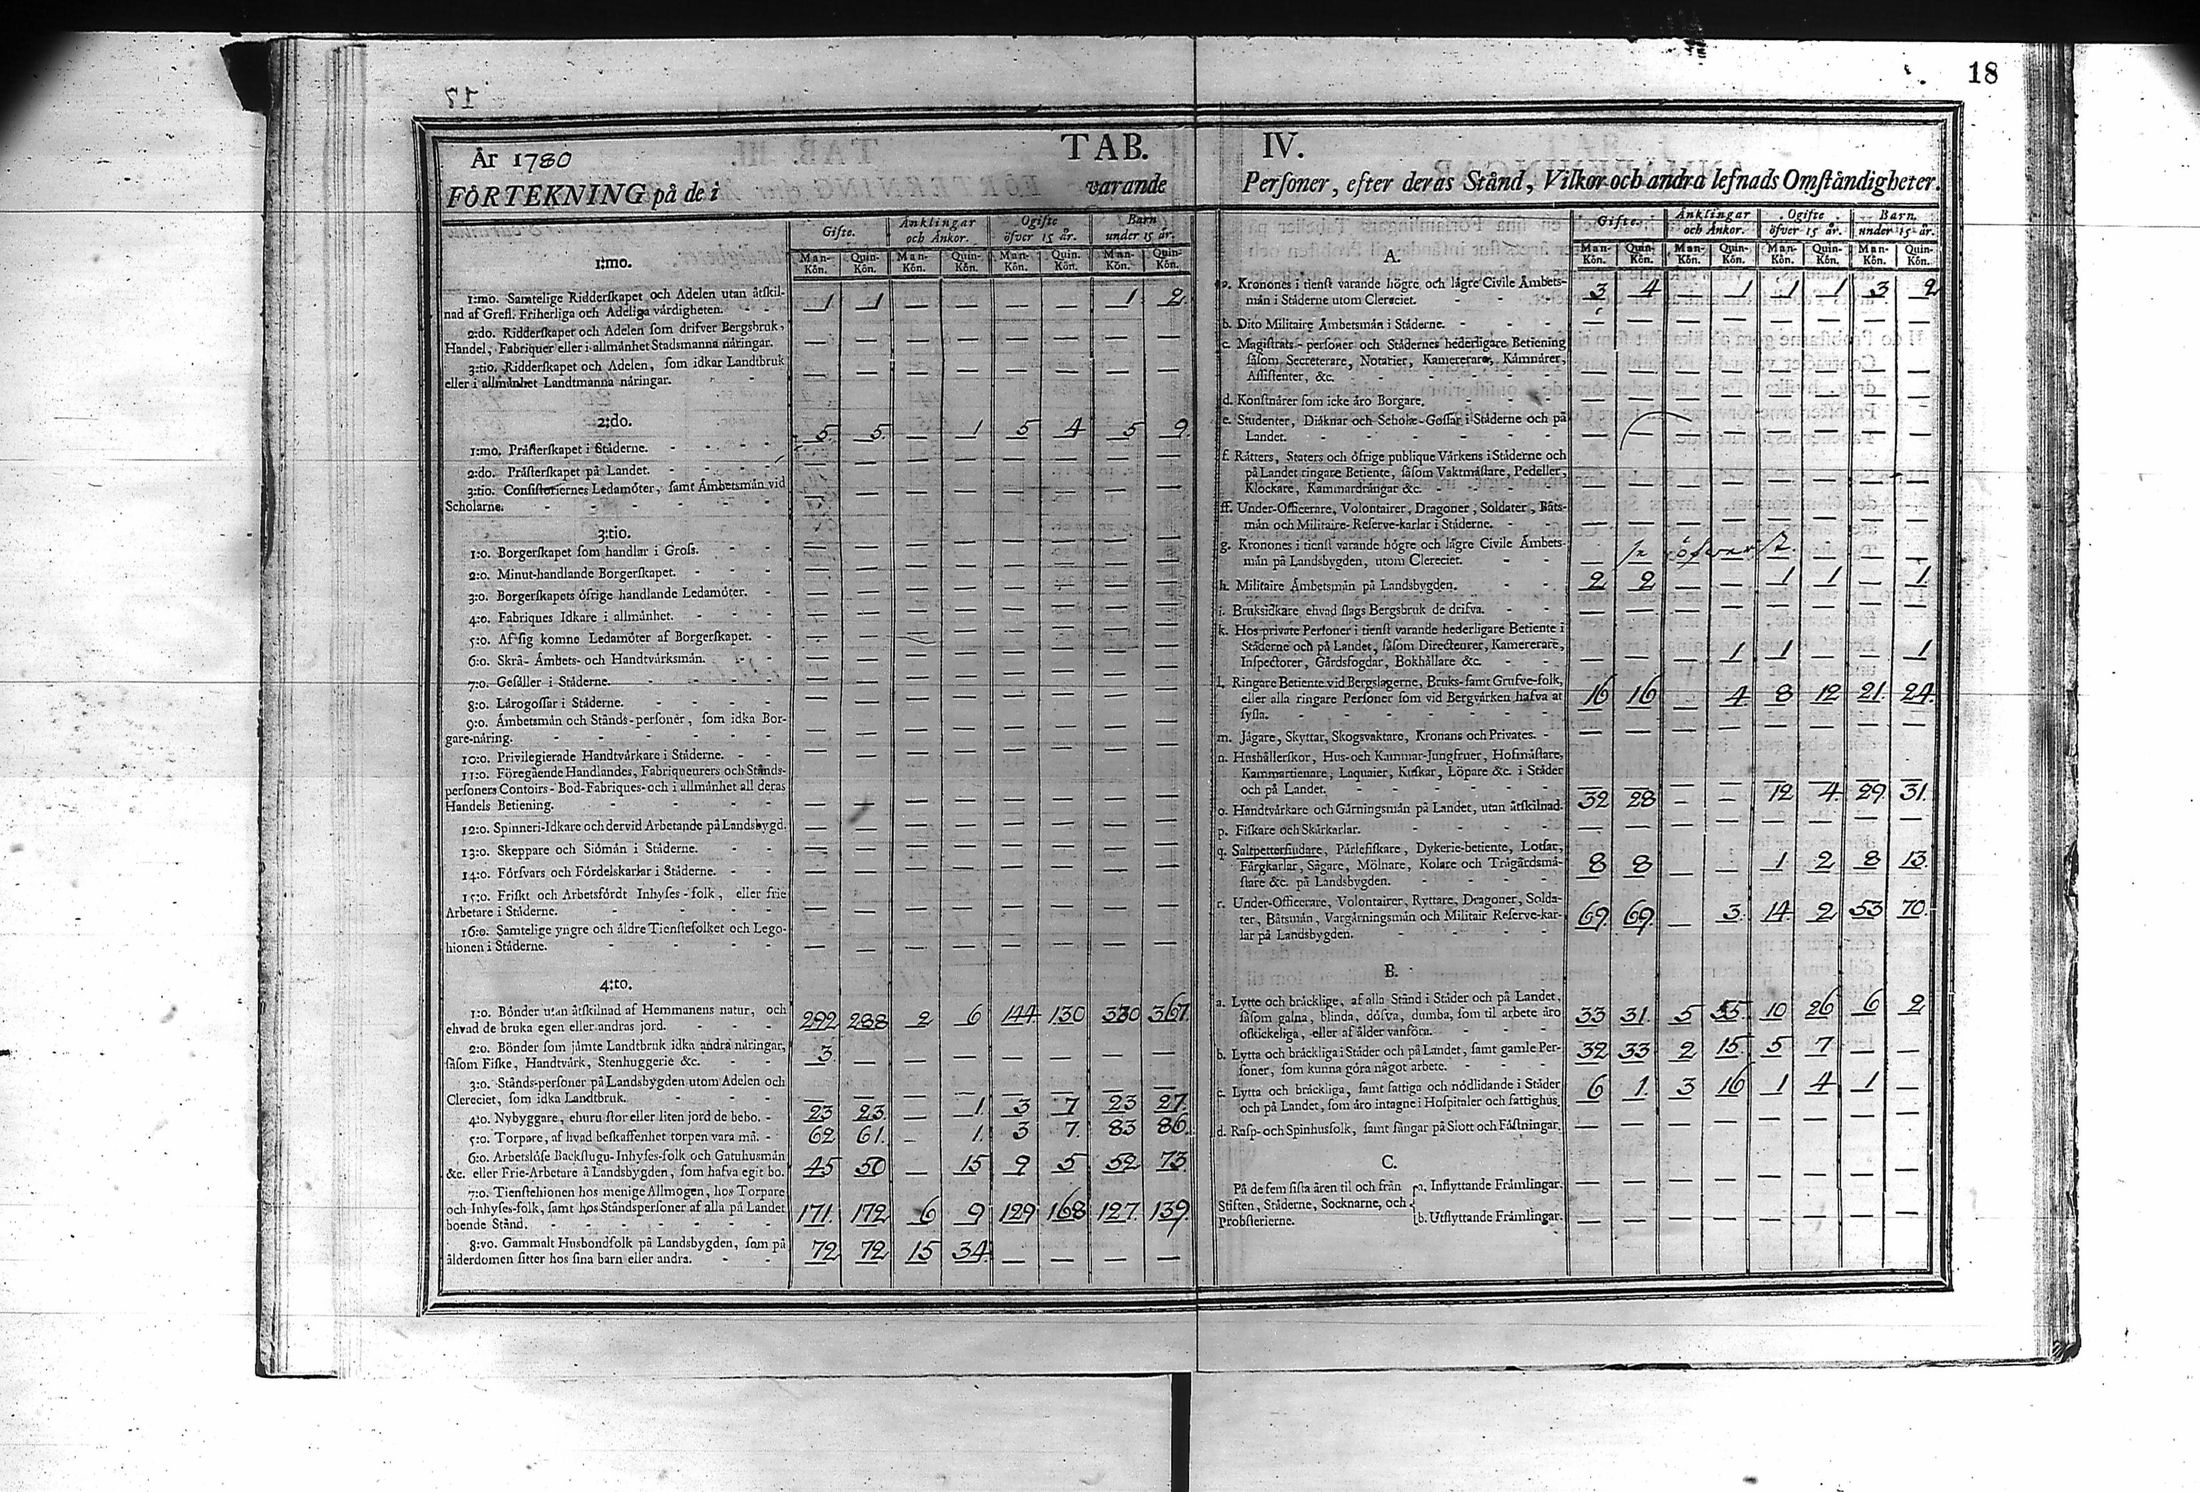 18
17
År 1780
TAB. IV.
FÖRTEKNING på de i varande Personer, efter deras Stånd, Vilkor och andra lefnads Omständigheter.
Gifte. Änklingar och Änkor. Ogifte öfver 15 år. Barn under 15 år.
Man-Kön. Quin-Kön. Man-Kön. Quin-Kön. Man-Kön. Quin-Kön. Man-Kön. Quin-Kön.
1:mo.
1:mo. Samtelige Ridderskapet och Adelen utan åtskil-
nad af Grefl. Friherliga och Adeliga värdigheten. 1 1 — — — — 1 2
2:do. Ridderskapet och Adelen som drifver Bergsbruk,
Handel, Fabriquer eller i allmänhet Stadsmanna näringar. — — — — — — — —
3:tio. Ridderskapet och Adelen, som idkar Landtbruk
eller i allmänhet Landtmanna näringar. — — — — — — — —
2:do.
1:mo. Prästerskapet i Städerne. 5 5 — 1 5 4 5 9
2:do. Prästerskapet på Landet. — — — — — — — —
3:tio. Consistoriernes Ledamöter, samt Ämbetsmän vid
Scholarne. — — — — — — — —
3:tio.
1:o. Borgerskapet som handlar i Gross. — — — — — — — —
2:o. Minut-handlande Borgerskapet. — — — — — — — —
3:o. Borgerskapets öfrige handlande Ledamöter. — — — — — — — —
4:o. Fabriques Idkare i allmänhet. — — — — — — — —
5:o. Af sig komne Ledamöter af Borgerskapet. — — — — — — — —
6:o. Skrå- Ämbets- och Handtvärksmän. — — — — — — — —
7:o. Gesäller i Städerne. — — — — — — — —
8:o. Lärogossar i Städerne. — — — — — — — —
9:o. Ämbetsmän och Stånds-personer, som idka Bor-
gare-näring. — — — — — — — —
10:o. Privilegierade Handtvärkare i Städerne. — — — — — — — —
11:o. Föregående Handlandes, Fabriqueurers och Stånds-
personers Contoirs- Bod-Fabriques- och i allmänhet all deras
Handels Betiening. — — — — — — — —
12:o. Spinneri-Idkare och dervid Arbetande på Landsbygd. — — — — — — — —
13:o. Skeppare och Siömän i Städerne. — — — — — — — —
14:o. Försvars och Fördelskarlar i Städerne. — — — — — — — —
15:o. Friskt och Arbetsfördt Inhyses-folk, eller frie
Arbetare i Städerne. — — — — — — — —
16:o. Samtelige yngre och äldre Tienstefolket och Lego-
hionen i Städerne. — — — — — — — —
4:to.
1:o. Bönder utan åtskilnad af Hemmanens natur, och
ehvad de bruka egen eller andras jord. 292 288 2 6 144 130 330 367
2:o. Bönder som jämte Landtbruk idka andra näringar,
såsom Fiske, Handtvärk, Stenhuggerie &c. 3 — — — — — — —
3:o. Stånds-personer på Landsbygden utom Adelen och
Clereciet, som idka Landtbruk. — — — — — — — —
4:o. Nybyggare, ehuru stor eller liten jord de bebo. 23 23 — 1 3 7 23 27
5:o. Torpare, af hvad beskaffenhet torpen vara må. 62 61 — 1 3 7 83 86
6:o. Arbetslöse Backstugu- Inhyses-folk och Gatuhusmän
&c. eller Frie-Arbetare å Landsbygden, som hafva egit bo. 45 50 — 15 9 5 52 73
7:o. Tienstehionen hos menige Allmogen, hos Torpare
och Inhyses-folk, samt hos Ståndspersoner af alla på Landet
boende Stånd. 171 172 6 9 129 168 127 139
8:vo. Gammalt Husbondfolk på Landsbygden, som på
ålderdomen sitter hos sina barn eller andra. 72 72 15 34 — — — —
Gifte. Änklingar och Änkor. Ogifte öfver 15 år. Barn. under 15 år.
Man-Kön. Quin-Kön. Man-Kön. Quin-Kön. Man-Kön. Quin-Kön. Man-Kön. Quin-Kön.
A.
Kronones i tienst varande högre och lägre Civile Ämbets-
män i Städerne utom Clereciet. 3 4 — 1 1 1 3 2
b. Dito Militaire Ämbetsmän i Städerne. — — — — — — — —
c. Magistrats-personer och Städernes hederligare Betiening
såsom Secreterare, Notarier, Kamererare, Kämnärer,
Assistenter, &c. — — — — — — — —
d. Konstnärer som icke äro Borgare. — — — — — — — —
e. Studenter, Diäknar och Scholæ-Gossar i Städerne och på
Landet. — — — — — — — —
f. Rätters, Staters och öfrige publique Värkens i Städerne och
på Landet ringare Betiente, såsom Vaktmästare, Pedeller,
Klockare, Kammardrängar &c. — — — — — — — —
ff. Under-Officerare, Volontairer, Dragoner, Soldater, Båts-
män och Militaire-Reserve-karlar i Städerne. — — — — — — — —
g. Kronones i tienst varande högre och lägre Civile Ämbets-
män på Landsbygden, utom Clereciet. — se öfverst. — —
h. Militaire Ämbetsmän på Landsbygden. 2 2 — — 1 1 — 1
i. Bruksidkare ehvad slags Bergsbruk de drifva. — — — — — — — —
k. Hos private Personer i tienst varande hederligare Betiente i
Städerne och på Landet, såsom Directeurer, Kamererare,
Inspectorer, Gårdsfogdar, Bokhållare &c. — — — 1 1 — — 1
l. Ringare Betiente vid Bergslagerne, Bruks- samt Grufve-folk,
eller alla ringare Personer som vid Bergvärken hafva at
sysla. 16 16 — 4 8 12 21 24
m. Jägare, Skyttar, Skogsvaktare, Kronans och Privates. — — — — — — — —
n. Hushållerskor, Hus-och Kammar-Jungfruer, Hofmästare,
Kammartienare, Laquaier, Kuskar, Löpare &c. i Städer
och på Landet. — — — — — —
o. Handtvärkare och Gärningsmän på Landet, utan åtskilnad. 32 28 — — 12 4 29 31
p. Fiskare och Skärkarlar. — — — — — — — —
q. Saltpettersiudare, Pärlefiskare, Dykerie-betiente, Lotsar,
Färgkarlar, Sågare, Mölnare, Kolare och Trägårdsmä-
stare &c. på Landsbygden. 8 8 — — 1 2 8 13
r. Under-Officerare, Volontairer, Ryttare, Dragoner, Solda-
ter, Båtsmän, Vargärningsmän och Militair Reserve-kar-
lar på Landsbygden. 69 69 — 3 14 2 53 70
B.
a. Lytte och bräcklige, af alla Stånd i Städer och på Landet,
såsom galna, blinda, döfva, dumba, som til arbete äro
oskickeliga, eller af ålder vanföra. 33 31 5 55 10 26 6 2
b. Lytta och bräckliga i Städer och på Landet, samt gamle Per-
soner, som kunna göra något arbete. 32 33 2 15 5 7 — —
c. Lytta och bräckliga, samt fattiga och nödlidande i Städer
och på Landet, som äro intagne i Hospitaler och fattighus. 6 1 3 16 1 4 1 —
d. Rasp- och Spinhusfolk, samt fångar på Slott och Fästningar. — — — — — — — —
C.
På de fem sista åren til och från
Stiften, Städerne, Socknarne, och
Probsterierne.
a. Inflyttande Främlingar. — — — — — — — —
b. Utflyttande Främlingar. — — — — — — — —